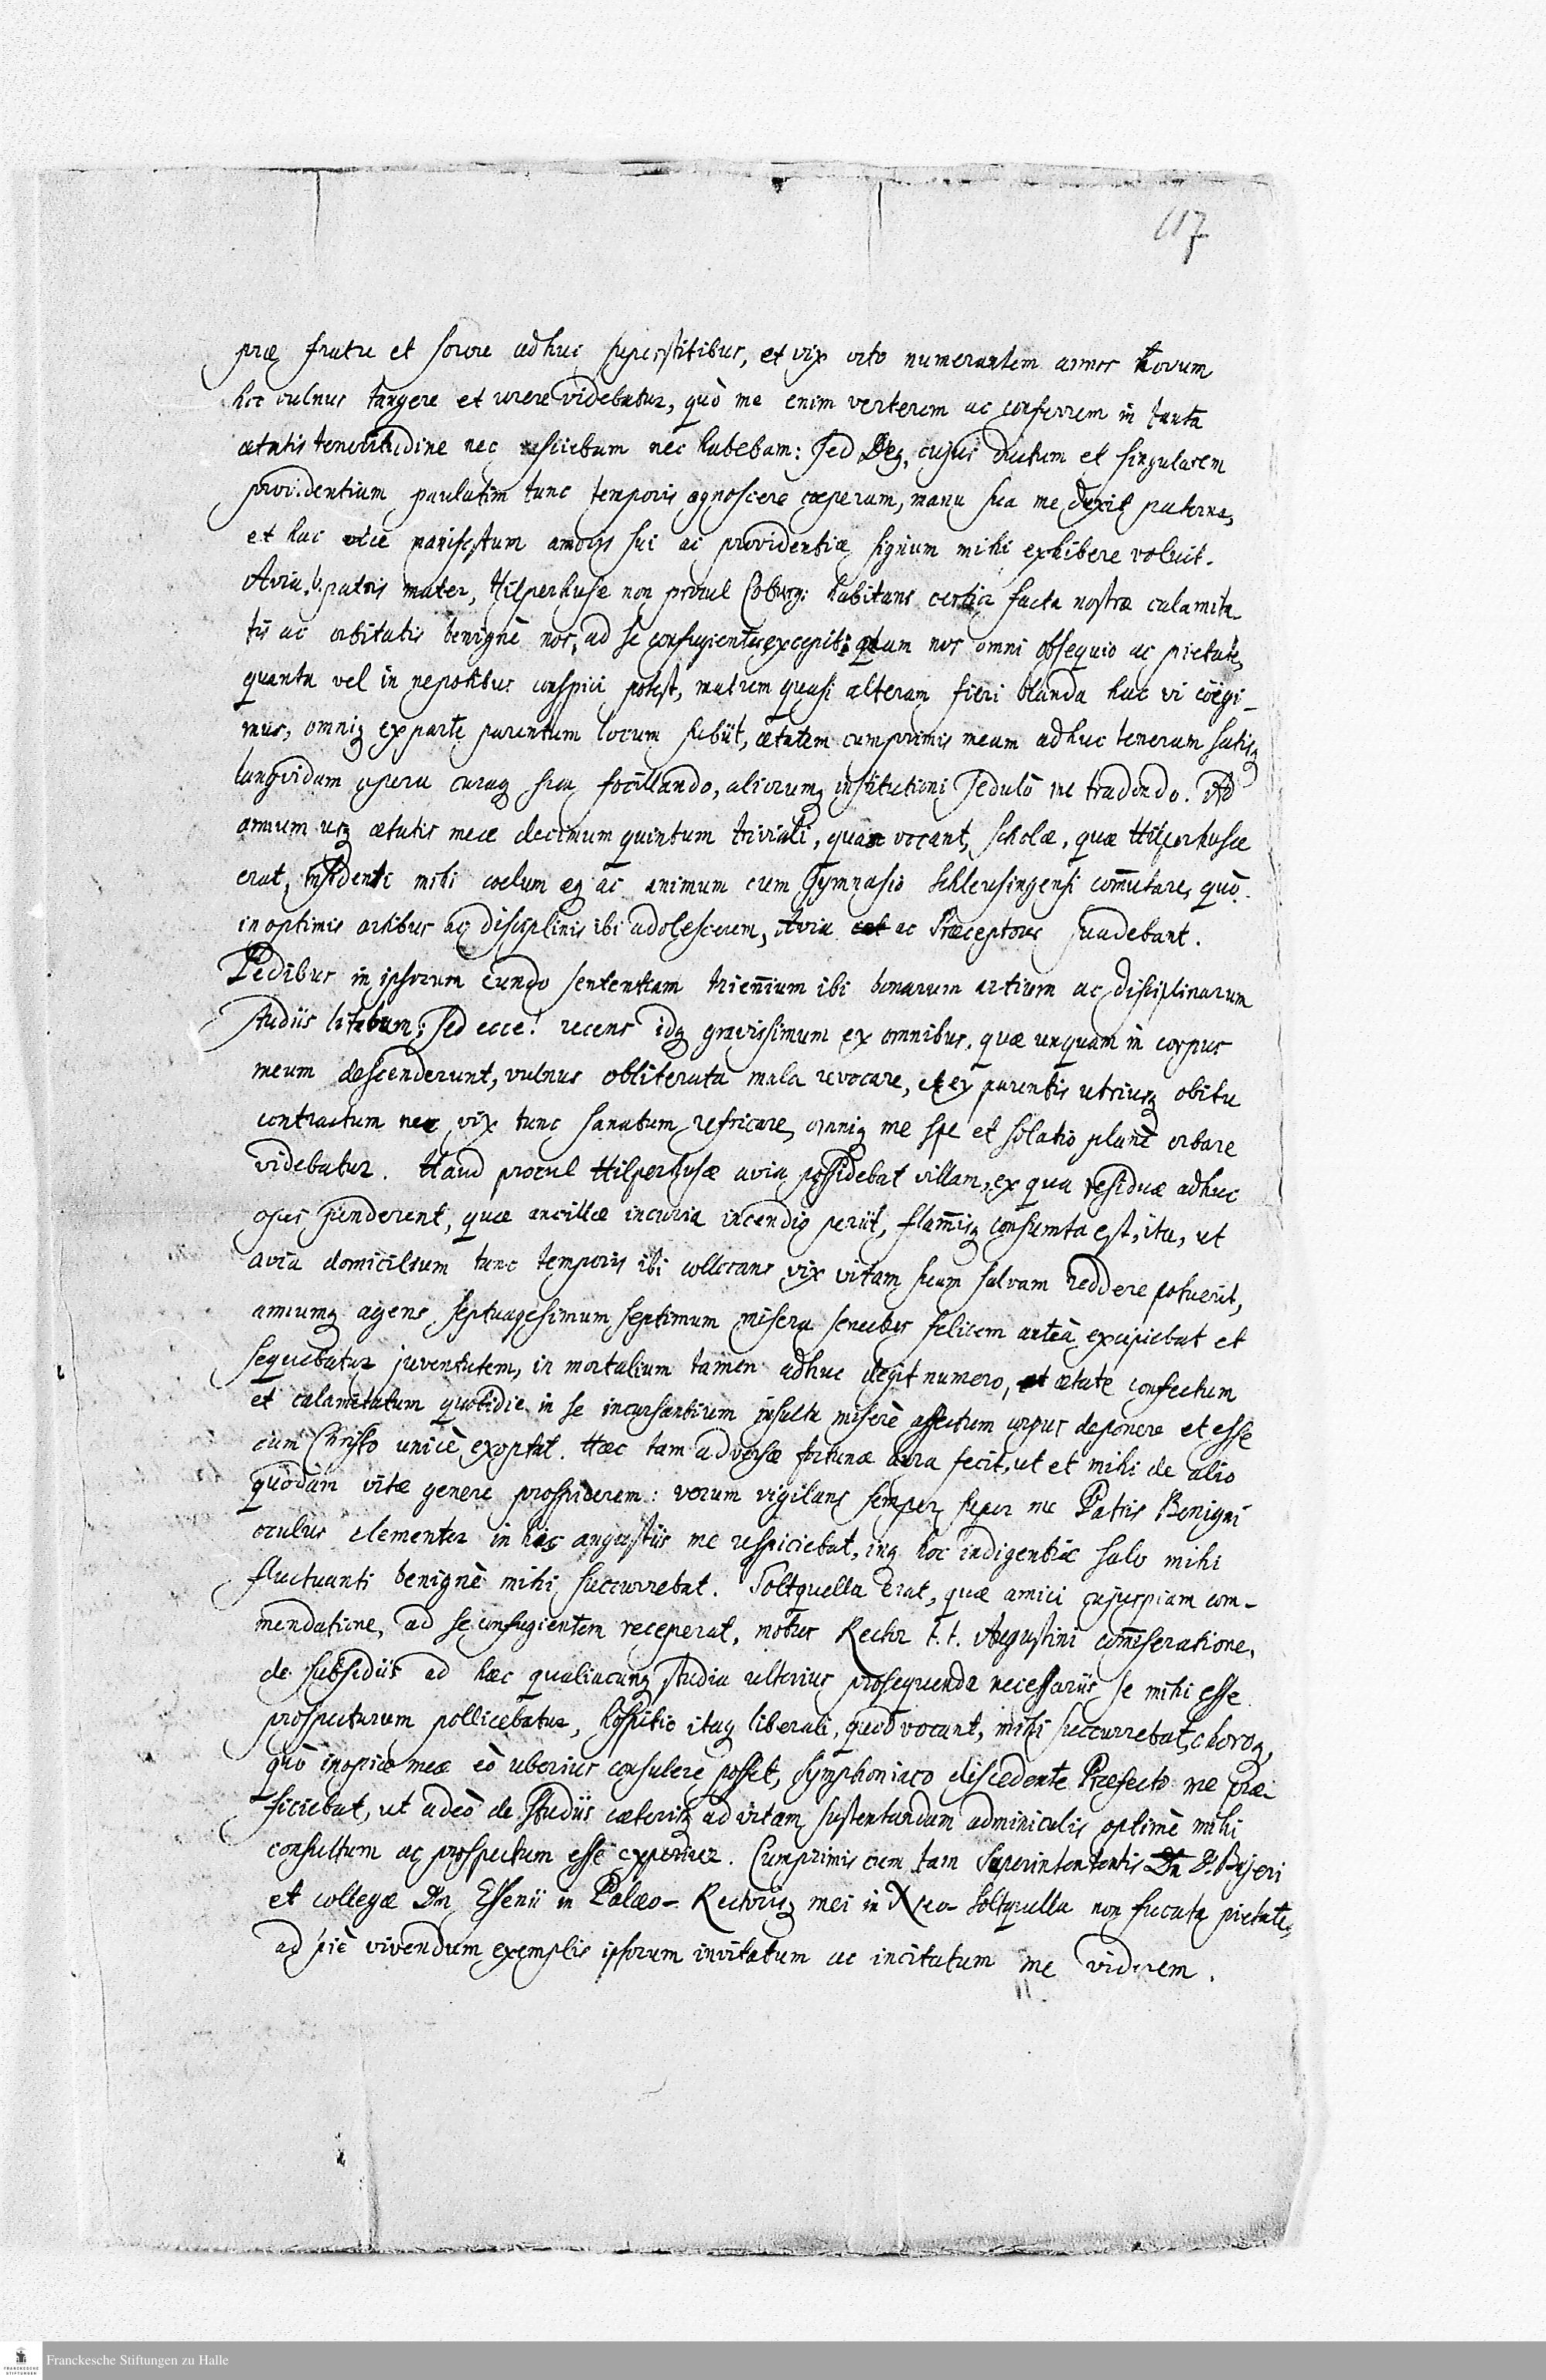 117
præ fratre et sorore adhuc superstitibus, et vix octo numerantem annos novum
hoc vulnus tangere et urere videbatur, quò me enim verterem ac conferrem in tanta
ætatis teneritudine nec sciebam nec habebam: sed Deg, cujus ductum et singularem
providentiam paulatim tunc temporis agnoscere cœperam, manu sua me duxit paterna,
et hac vice manifestum amoris sui ac providentiæ signum mihi exhibere voluit.
Avia, b. patris mater, Hilperhusæ non procul Coburg: habitans certior facta nostræ calamita
tis ac orbitatis benignè nos, ad se confugientes excepit; quam nos omni obsequio ac pietate,
quanta vel in nepotibus conspici potest, matrem quasi alteram fieri blanda hac vi coëgi-
mus, omniq ex parte parentum locum subiit, ætatem cumprimis meam adhuc teneram satisq
languidam opera curaq sua focillando, aliorumq institutioni sedulò me tradendo. Ad
annum usq ætatis meæ decimum quintum triviali, quam vocant, scholæ, quæ Hilperhusæ
erat, insidenti mihi coelum eq ac animum cum Gymnasio Schleusingensi com̄utare, quò
in optimis artibus ac disciplinis ibi adolescerem, Avia ac Præceptores suadebant.
Pedibus in ipsorum eundo sententiam trien̄ium ibi bonarum artium ac disciplinarum
studiis litabam; sed ecce! recens idq gravissimum ex omnibus, quæ unquam in corpus
meum descenderunt, vulnus obliterata mala revocare, et ex parentis utriusq obitu
contractum nec vix tunc sanatum refricare, omniq me spe et solatio planè orbare
videbatur. Haud procul Hilperhusæ avia possidebat villam, ex qua residuæ adhuc
opes penderent, quæ ancillæ incuria incendio periit, flam̄isq consumta est, ita, ut
avia domicilium tunc temporis ibi collocans vix vitam suam salvam reddere potuerit,
annumq agens septuagesimum septimum misera senectus felicem anteà excipiebat et
sequebatur juventutem, in mortalium tamen adhuc degit numero, et ætate confectum
et calamitatum quotidie in se incursantium insultu miserè affectum corpus deponere et esse
cum Christo unicè exoptat. Hæc tam adversæ fortunæ aura fecit, ut et mihi de alio
quodam vitæ genere prospicerem: verum vigilans semper super me Patris Benigni
oculus clementer in his angustiis me respiciebat, inq hoc indigentiæ salo mihi
fluctuanti benignè mihi succurrebat. Soltquella erat, quæ amici cujuspiam com-
mendatione, ad se confugientem receperat, motus Rector t. t. Augustini com̄iseratione,
de subsidiis ad hæc qualiacunq studia ulterius prosequenda necessariis se mihi esse
prospecturum pollicebatur, hospitio itaq liberali, quod vocant, mihi succurrebat, choroq,
quò inopiæ meæ eò uberius consulere posset, symphoniaco discedente Præfecto me præ-
ficiebat, ut adeò de studiis cæterisq ad vitam sustentandam adminiculis optimè mihi
consultum ac prospectum esse experirer. Cumprimis cum tam Superintententis Dn D.
et collegæ Dn Essenii in Palæo- Rectorisq mei in Neo- Soltquella non fucata pietate,
ad piè vivendum exemplis ipsorum invitatum ac incitatum me viderem.
Franckesche Stiftungen zu Halle